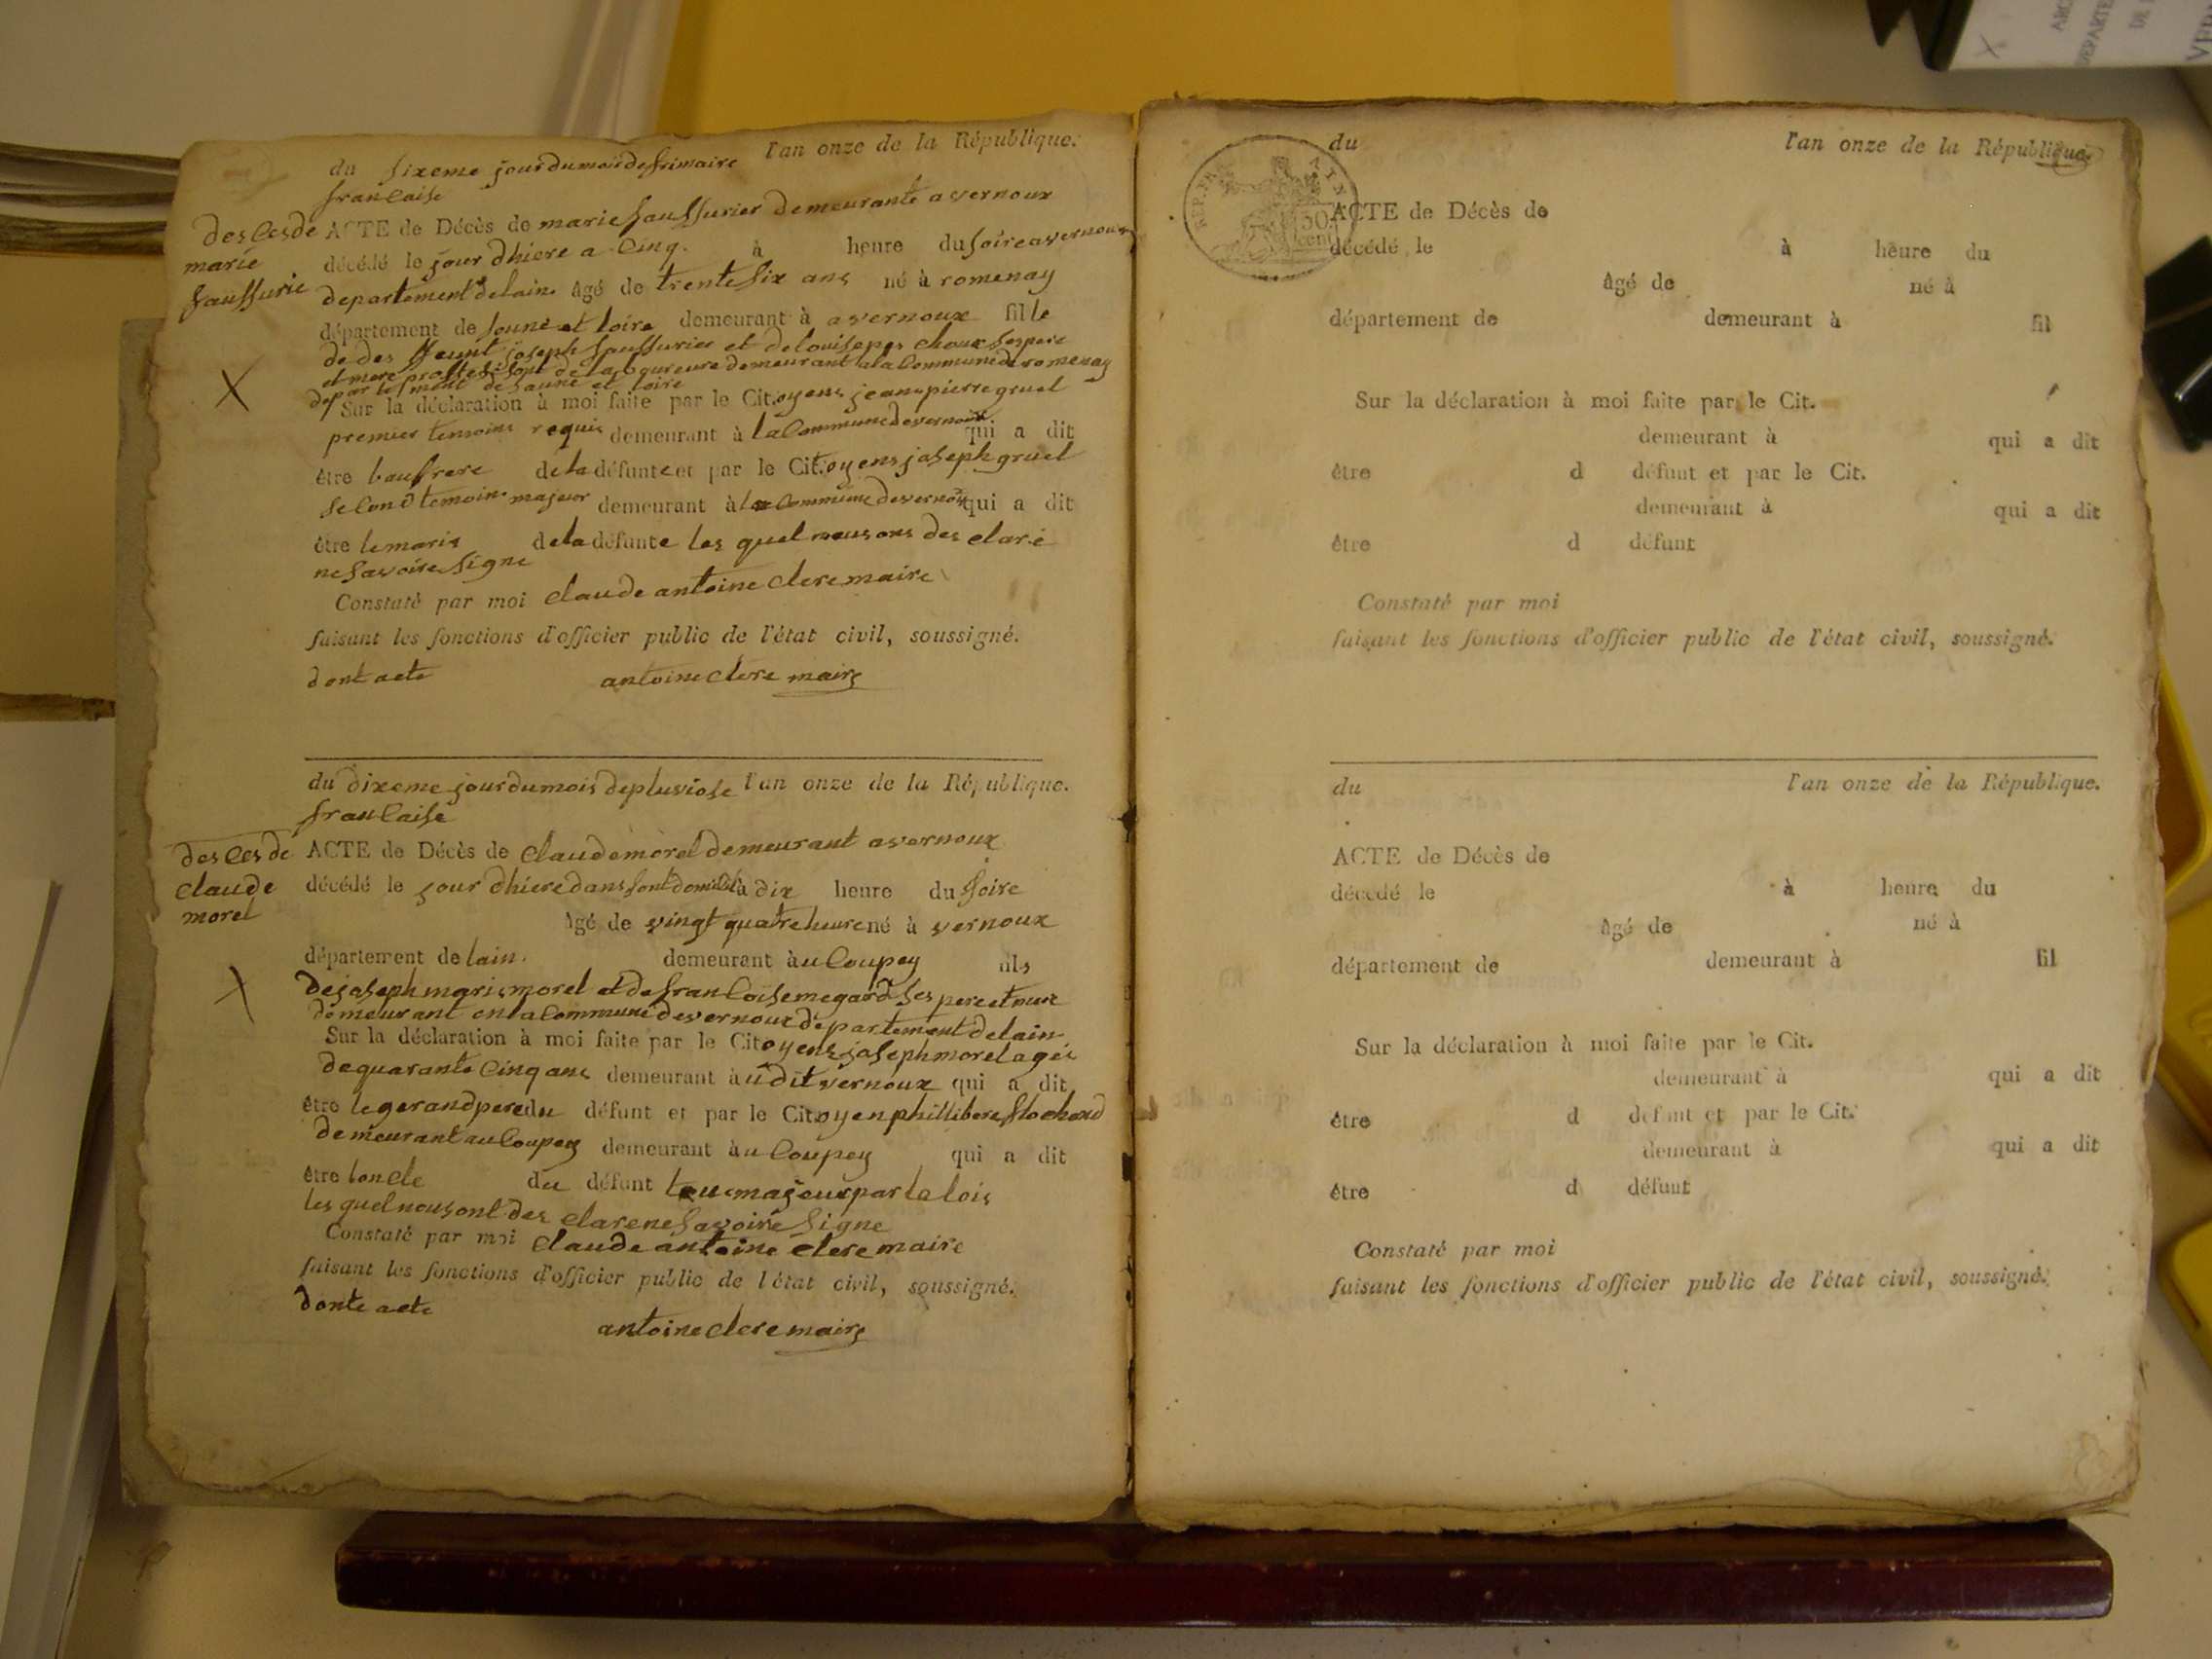 du sixeme jour du mois de frimaire l'an onze de la République.
francaise
des ces de
marie
saussurie
ACTE de Décès de marie saussurier demeurante a vernoux
décédé le jour dhiere a cinq. à heure du soire a vernoux
departement delain. âgé de trente six ans né à romenay
département de soune et loire demeurant à a vernoux fille
de des funt joseph saussurier et de louise pes choux ses pere
et mere demeurant a la Commune de romenay
departement de saune et loire
Sur la déclaration à moi faite par le Cit.oyens jeans pierre gruel
premier temoins requis demeurant à la Commune de vernoux qui a dit
être baufrere de la défunte et par le Cit.oyens joseph gruel
second temoins majeur demeurant à la Commune de vernoux qui a dit
être le maris de la défunte les quel nous ons des claré
ne savoire signe
Constaté par moi claude antoine clere maire
faisant les fonctions d'officier public de l'état civil, soussigné.
dont acte antoine clere maire
du dixeme jour du mois de pluviose l'an onze de la République.
francaise
des ces de
claude
morel
ACTE de Décès de claude morel demeurant a vernoux
décédé le jour dhiere dans sont domicile à dix heure du soire
âgé de vingt quatre heure né à vernoux
département de lain. demeurant à u Coupey fils
de joseph marie morel et de francoise megard ses pere et mere
demeurant en la Commune de vernoux departement de lain
Sur la déclaration à moi faite par le Citoyens joseph morel agés
de quarante cinq ans demeurant à u dit vernoux qui a dit
être le gerand pere du défunt et par le Citoyen phillibere
demeurant au Coupey demeurant à u Coupey qui a dit
être loncle du défunt tous majeur par la lois
les quel nous ont des clare ne savoire signe
Constaté par moi claude antoine clere maire
faisant les fonctions d'officier public de l'état civil, soussigné.
donte acte
antoine clere maire
du l'an onze de la République.
REP. FRA
50
cent
ACTE de Décès de
décédé le à heure du
âgé de né à
département de demeurant à fil
Sur la déclaration à moi faite par le Cit.
demeurant à qui a dit
être d défunt et par le Cit.
demeurant à qui a dit
être d défunt
Constaté par moi
faisant les fonctions d'officier public de l'état civil, soussigné.
du l'an onze de la République.
ACTE de Décès de
décédé le à heure du
âgé de né à
département de demeurant à fil
Sur la déclaration à moi faite par le Cit.
demeurant à qui a dit
être d défunt et par le Cit.
demeurant à qui a dit
être d défunt
Constaté par moi
faisant les fonctions d'officier public de l'état civil, soussigné.